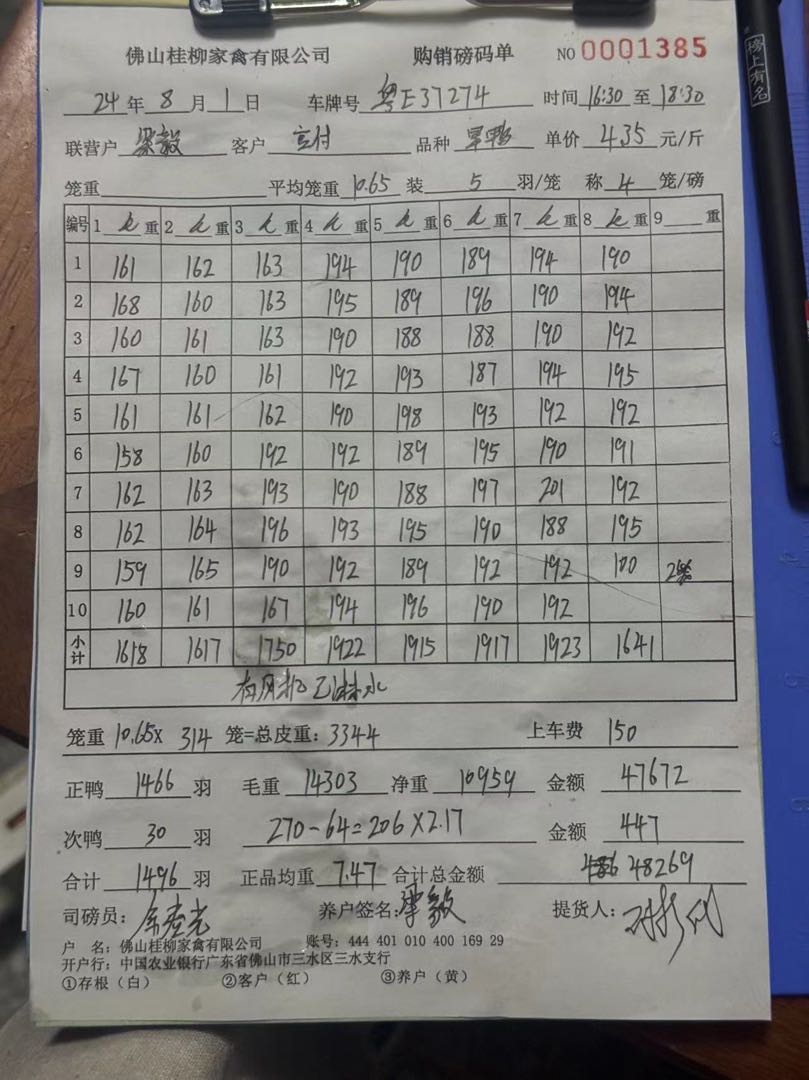 佛山桂柳家禽有限公司 购销磅码单 NO 0001385
24 年 8 月 1 日 车牌号 粤E37274 时间 16:30 至 18:30
联营户 梁毅 客户 品种 单价 4.35 元/斤
笼重 平均笼重 10.65 装 5 羽/笼 称 4 笼/磅
编号 1 重 2 重 3 重 4 重 5 重 6 重 7 重 8 重 9 重
1 161 162 163 194 190 189 194 190
2 168 160 163 195 189 196 190 194
3 160 161 163 190 188 188 190 192
4 167 160 161 192 193 187 194 195
5 161 161 162 190 198 193 192 192
6 158 160 192 192 189 195 190 191
7 162 163 193 190 188 197 201 192
8 162 164 196 193 195 190 188 195
9 159 165 190 192 189 192 192 100
10 160 161 167 194 196 190 192
小计 1618 1617 1750 1922 1915 1917 1923 1641
有风机 已淋水
笼重 10.65X 314 笼=总皮重: 3344 上车费 150
正鸭 1466 羽 毛重 14303 净重 10959 金额 47672
次鸭 30 羽 270-64=206X2.17 金额 447
合计 1496 羽 正品均重 7.47 合计总金额 48269
司磅员: 养户签名: 梁毅 提货人:
户 名: 佛山桂柳家禽有限公司 账号: 444 401 010 400 169 29
开户行: 中国农业银行广东省佛山市三水区三水支行
①存根（白） ②客户（红） ③养户（黄）
榜上有名